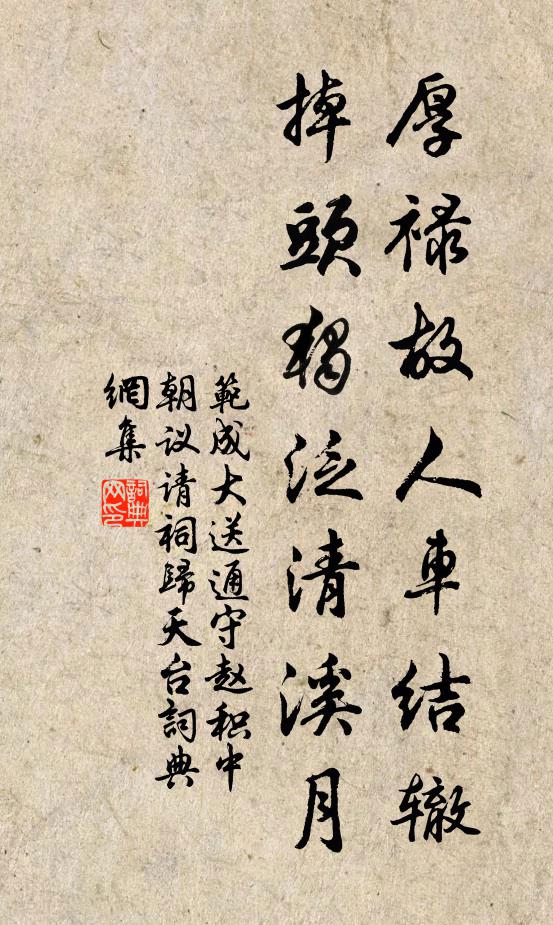 厚禄故人車结辙
掉頭獨泛清溪月
範成大送通守赵积中
朝议请祠歸天台詞典
網集
詞典
网印